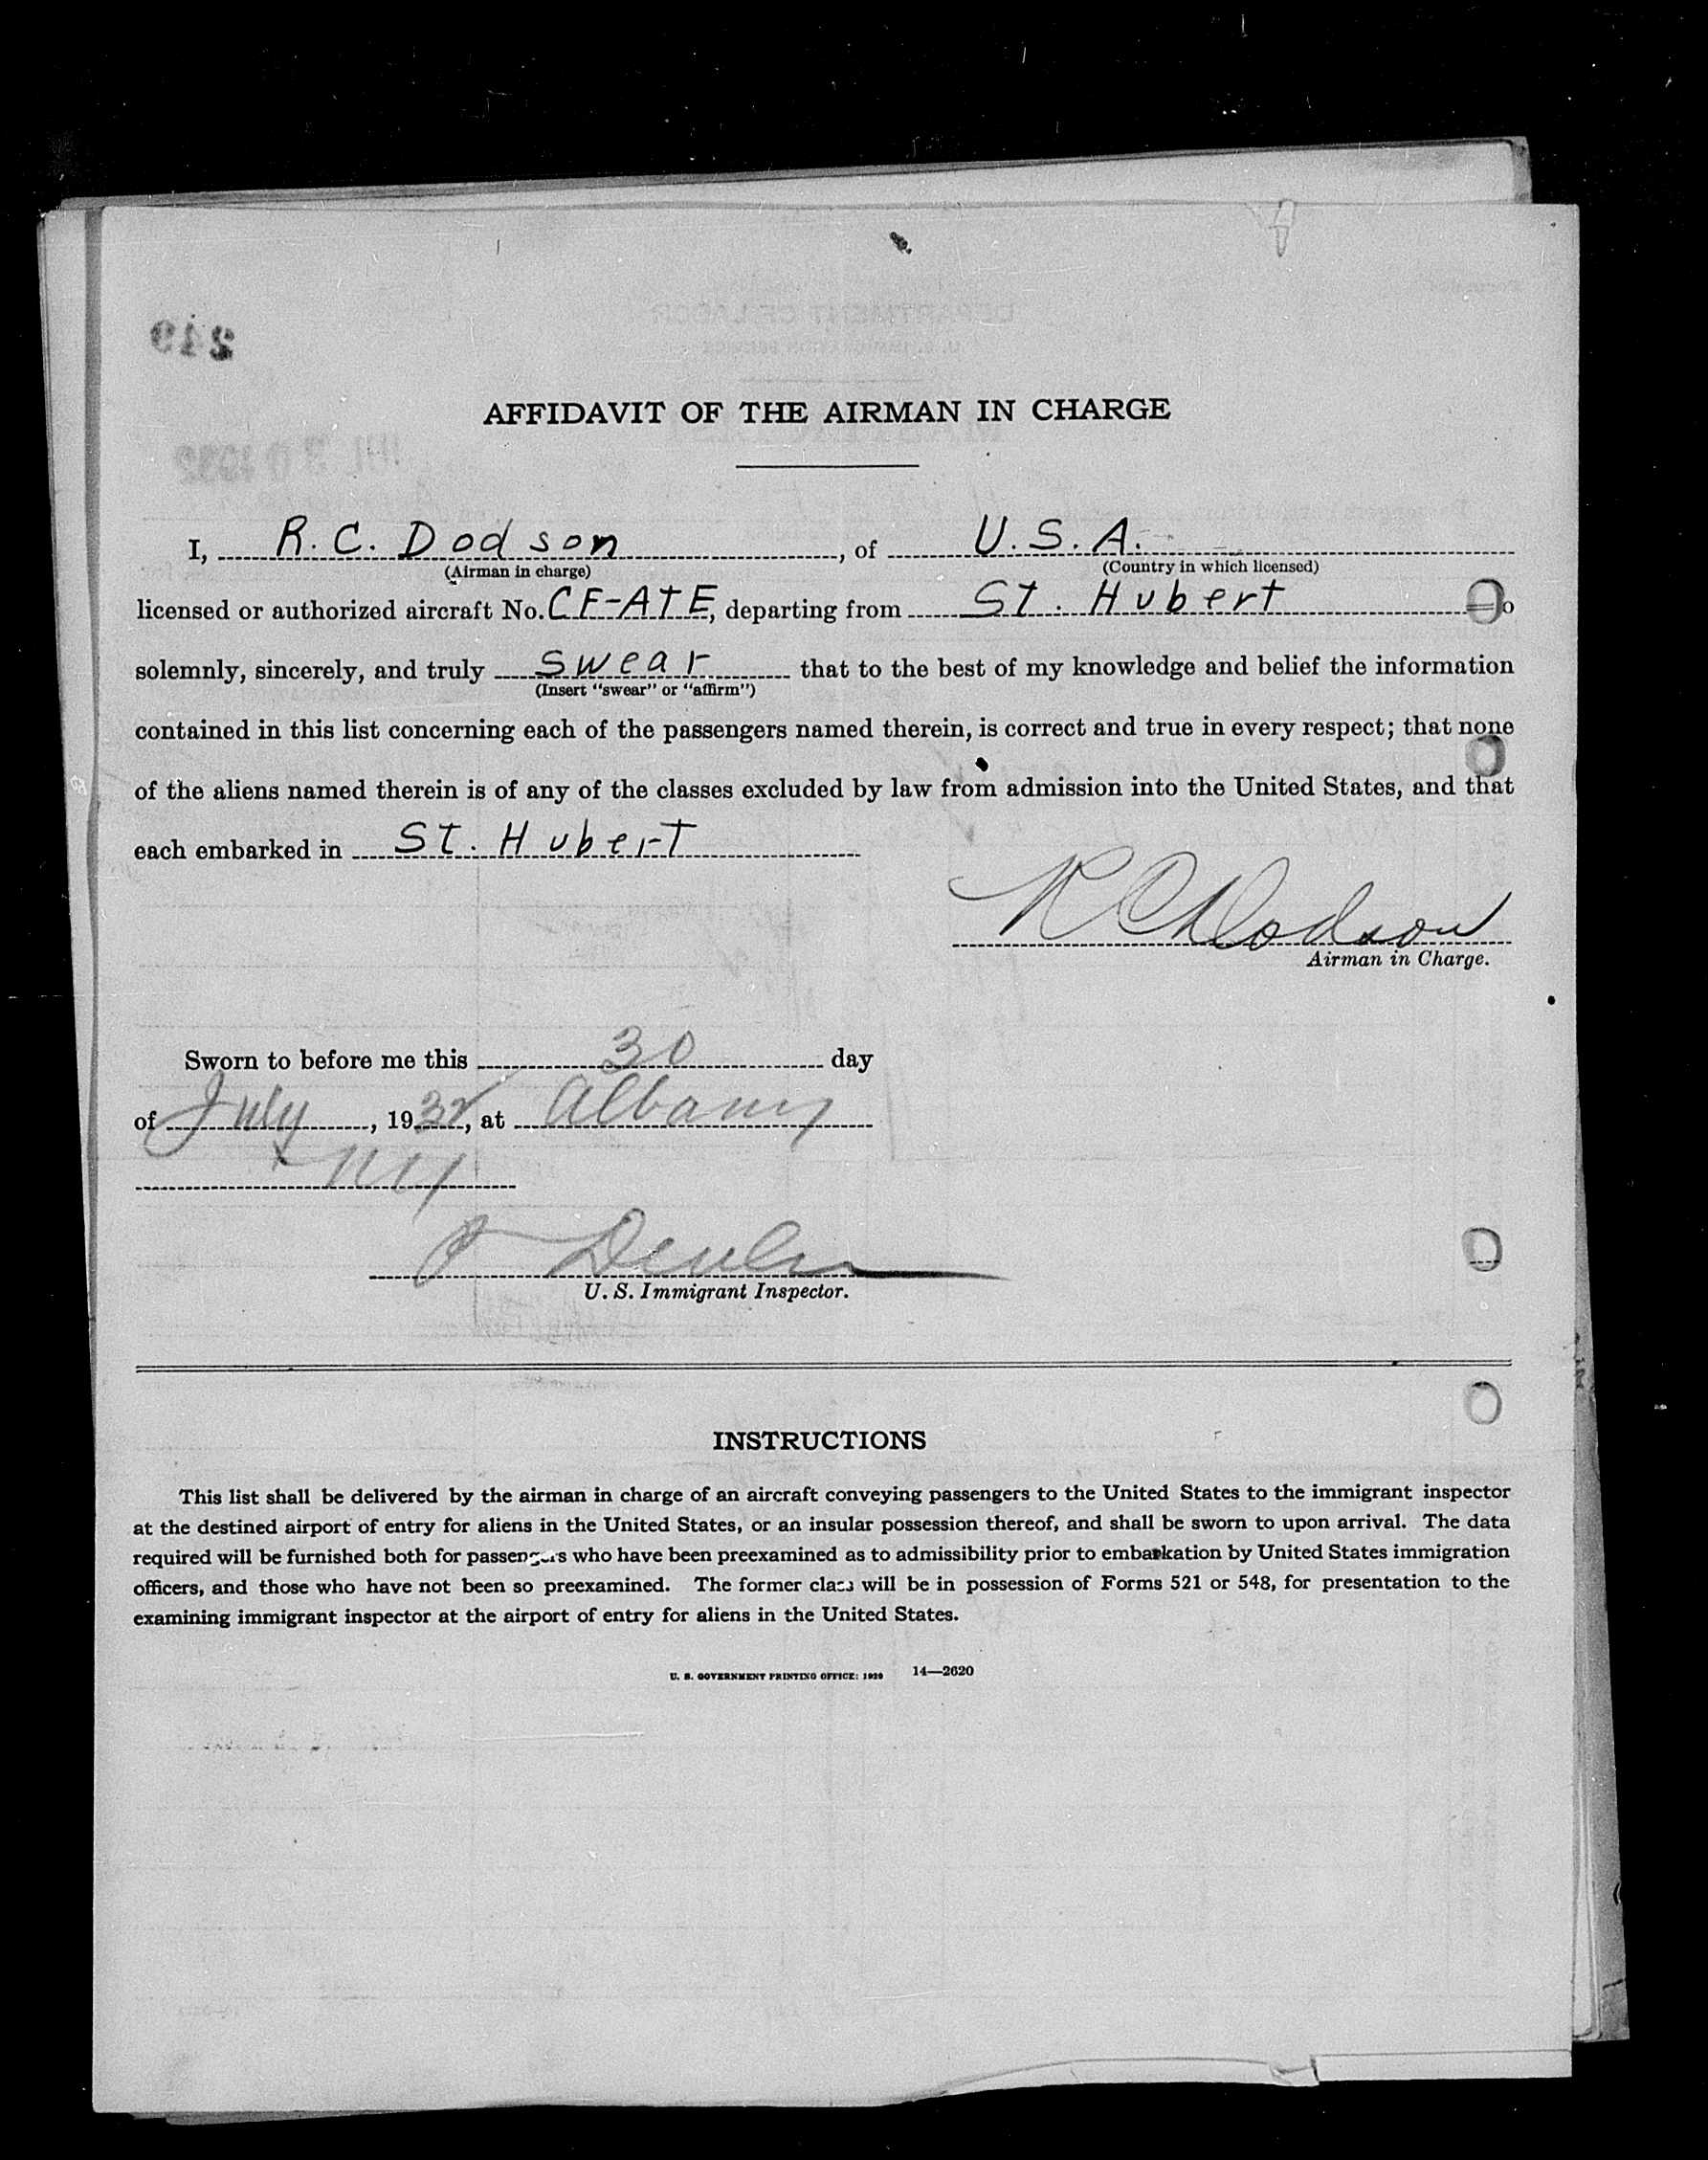 249
AFFIDAVIT OF THE AIRMAN IN CHARGE
JUL 30 1932
I, R. C. Dodson, of U. S. A.
(Airman in charge) (Country in which licensed)
licensed or authorized aircraft No. CF-ATE, departing from St. Hubert o
solemnly, sincerely, and truly swear that to the best of my knowledge and belief the information
(Insert "swear" or "affirm")
contained in this list concerning each of the passengers named therein, is correct and true in every respect; that none
of the aliens named therein is of any of the classes excluded by law from admission into the United States, and that
each embarked in St. Hubert
R C Dodson
Airman in Charge.
Sworn to before me this 30 day
of July, 1932, at Albany
NY
U. S. Immigrant Inspector.
INSTRUCTIONS
This list shall be delivered by the airman in charge of an aircraft conveying passengers to the United States to the immigrant inspector
at the destined airport of entry for aliens in the United States, or an insular possession thereof, and shall be sworn to upon arrival. The data
required will be furnished both for passengers who have been preexamined as to admissibility prior to embarkation by United States immigration
officers, and those who have not been so preexamined. The former class will be in possession of Forms 521 or 548, for presentation to the
examining immigrant inspector at the airport of entry for aliens in the United States.
U. S. GOVERNMENT PRINTING OFFICE: 1929 14—2620